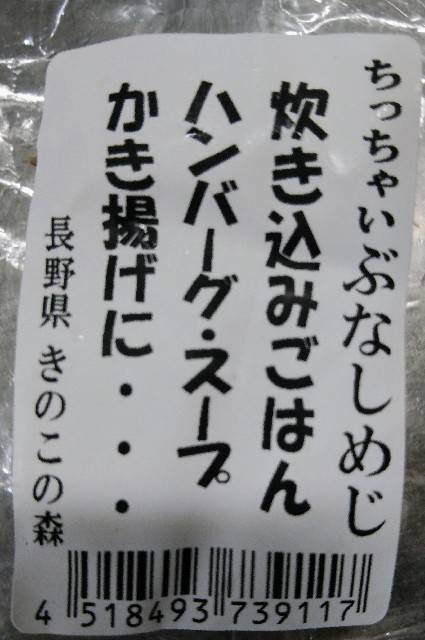 ちっちゃいぶなしめじ
炊き込みごはん
ハンバーグ・スープ
かき揚げに・・・
長野県 きのこの森
4 518493 739117